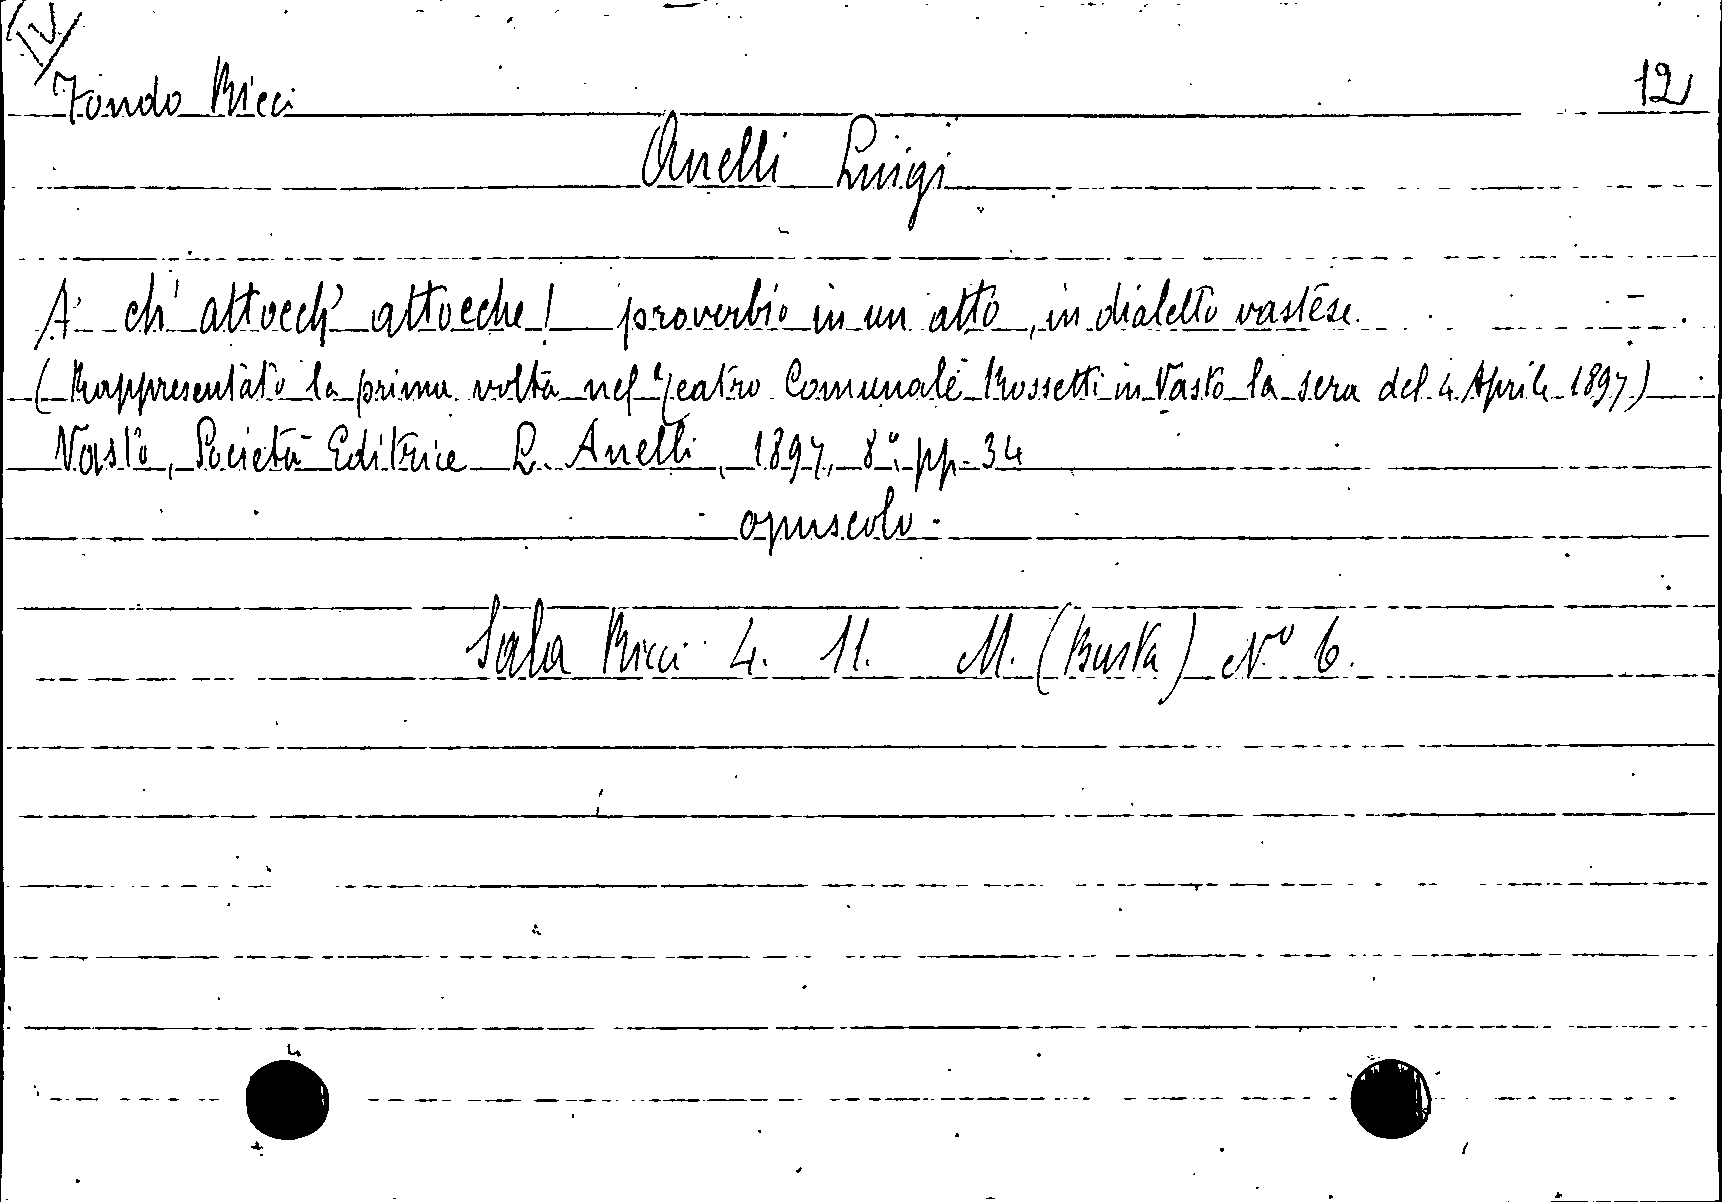 IV
Fondo Ricci 12
Anelli Luigi
A' ch' attocch' attocche! proverbio in un atto, in dialetto vastese.
(Rappresentato la prima volta nel Teatro Comunale Rossetti in Vasto la sera del 4 Aprile 1897)
Vasto, Società Editrice L. Anelli, 1897, 8°, pp. 34
opuscolo.
Sala Ricci 4. 11. M. (Busta) N.° 6.